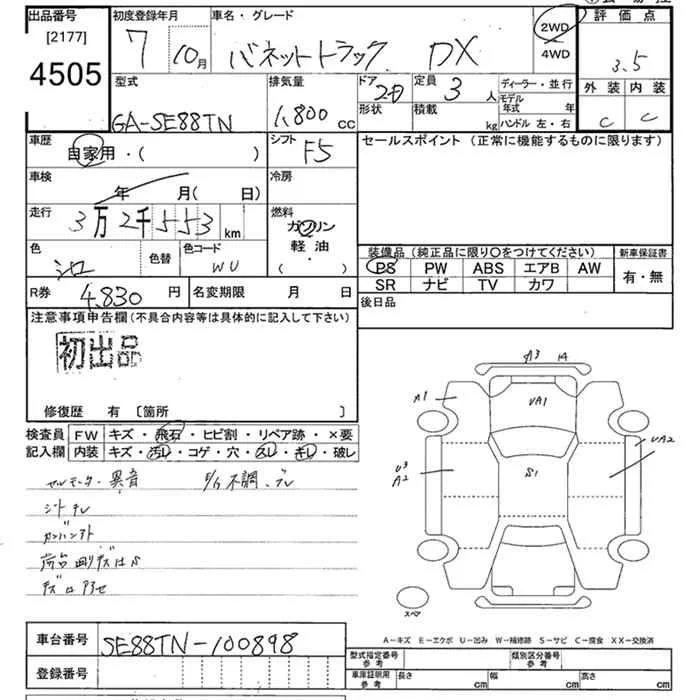 出品番号
[2177]
4505
初度登録年月
7 10月
車名・グレード
バネットトラック DX
2WD
4WD
評価点
3.5
外装 内装
C C
型式
GA-SE88TN
排気量
1,800 cc
ドア 2D
形状
定員 3 人
積載 kg
ディーラー・並行
モデル年式 年
ハンドル 左・右
車歴
自家用・( )
シフト F5
セールスポイント (正常に機能するものに限ります)
車検
年 月(日)
冷房
走行
3万2千553 km
燃料
ガソリン
軽油
・
( )
色
シロ
色替
色コード
WU
装備品(純正品に限り○をつけてください)
PS PW ABS エアB AW
SR ナビ TV カワ
新車保証書
有・無
R券 4,830 円
名変期限 月 日
後日品
注意事項申告欄(不具合内容等は具体的に記入して下さい)
初出品
修復歴 有 〔箇所 〕
検査員記入欄
FW キズ・飛石・ヒビ割・リペア跡・×要
内装 キズ・汚レ・コゲ・穴・スレ・キレ・破レ
セルモーター異音
F/G不調、ブレ
シートキレ
荷台
A3 1A
A1
UA1
UA2
U3
A2
S1
スペア
A−キズ E−エクボ U−凹み W−補修跡 S−サビ C−腐食 XX−交換済
車台番号 SE88TN-100898
登録番号
型式指定番号
参考
類別区分番号
参考
車庫証明用
参考
長さ cm
幅 cm
高さ cm